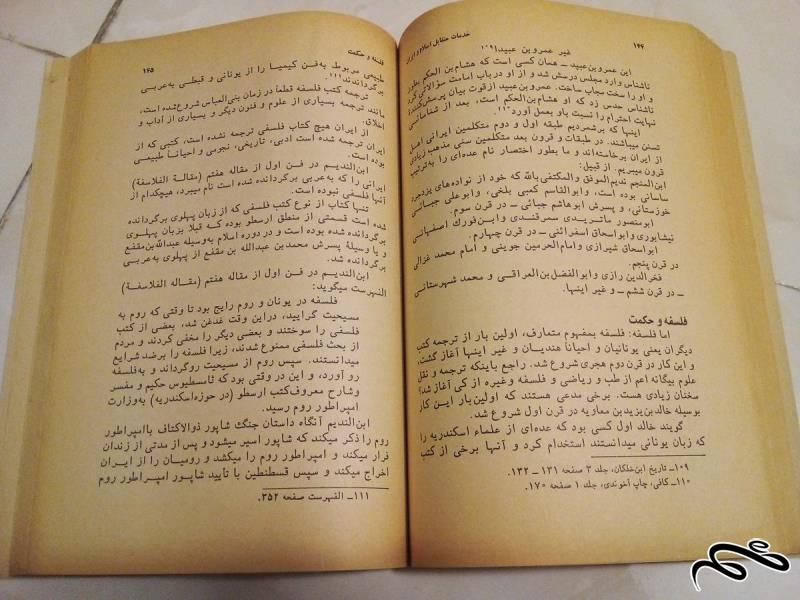 ۱۴۴
خدمات متقابل اسلام و ایران
غیر عمروبن عبید!۱۰۹
این عمروبن‌عبید ــ همان کسی است که هشام‌بن الحکم بطور
ناشناس وارد مجلس درسش شد و از او در باب امامت سؤالاتی کرد
و او را سخت مجاب ساخت. عمروبن عبید از قوت بیان پرسش‌کنندۀ
ناشناس حدس زد که او هشام‌بن‌الحکم است، بعد از شناسائی
نهایت احترام را نسبت باو بعمل آورد۱۱۰.
اینها که برشمردیم طبقه اول و دوم متکلمین ایرانی اهل
تسنن میباشند. در طبقات و قرون بعد متکلمین سنی مذهب زیادی
از ایران برخاسته‌اند و ما بطور اختصار نام عده‌ای را به‌ترتیب
قرون میبریم. از قبیل:
ابن‌المنجم ندیم‌الموفق والمکتفی‌بالله که خود از نواده‌های یزدجرد
ساسانی بوده است، وابوالقاسم کعبی بلخی، وابوعلی جبائی
خوزستانی، و پسرش ابوهاشم جبائی ــ در قرن سوم.
ابومنصور ماتریدی سمرقندی وابن‌فورك اصفهانی
نیشابوری وابواسحاق اسفرائنی ــ در قرن چهارم.
ابواسحاق شیرازی وامام‌الحرمین جوینی و امام محمد غزالی
در قرن پنجم.
فخرالدین رازی وابوالفضل‌بن‌العراقی و محمد شهرستانی
ــ در قرن ششم ــ و غیر اینها.
فلسفه و حکمت
اما فلسفه: فلسفه بمفهوم متعارف، اولین بار از ترجمه کتب
دیگران یعنی یونانیان و احیاناً هندیان و غیر اینها آغاز گشت،
و این کار در قرن دوم هجری شروع شد. راجع باینکه ترجمه و نقل
علوم بیگانه اعم از طب و ریاضی و فلسفه وغیره از کی آغاز شد؟
سخنان زیادی هست. برخی مدعی هستند که اولین‌بار این کار
بوسیله خالدبن‌یزیدبن معاویه در قرن اول شروع شد.
گویند خالد اول کسی بود که عده‌ای از علماء اسکندریه را
که زبان یونانی میدانستند استخدام کرد و آنها برخی از کتب
۱۰۹ــ تاریخ ابن‌خلکان، جلد ۳ صفحه ۱۳۱ ــ ۱۳۲.
۱۱۰ــ کافی، چاپ آخوندی، جلد ۱ صفحه ۱۷۰.
فلسفه و حکمت
۱۴۵
طبیعی مربوط به‌فن کیمیا را از یونانی و قبطی به‌عربی
برگرداندند۱۱۱.
ترجمه کتب فلسفه قطعاً در زمان بنی‌العباس شروع‌شده است،
مانند ترجمه بسیاری از علوم و فنون دیگر و بسیاری از آداب و
اخلاق.
از ایران هیچ کتاب فلسفی ترجمه نشده است، کتبی که از
ایران ترجمه شده است ادبی، تاریخی، نجومی و احیاناً طبیعی
بوده است.
ابن‌الندیم در فن اول از مقاله هفتم (مقالة الفلاسفة)
ایرانی را که به‌عربی برگردانده شده است نام میبرد، هیچکدام از
آنها فلسفی نبوده است.
تنها کتاب از نوع کتب فلسفی که از زبان پهلوی برگردانده
شده است قسمتی از منطق ارسطو بوده که قبلا بزبان پهلوی
برگردانده شده بوده است و در دوره اسلام به‌وسیله عبدالله‌بن‌مقفع
و یا وسیلۀ پسرش محمدبن عبدالله بن مقفع از پهلوی به‌عربی
برگردانده شد.
ابن‌الندیم در فن اول از مقاله هفتم (مقاله الفلاسفة)
الفهرست میگوید:
فلسفه در یونان و روم رایج بود تا وقتی که روم به
مسیحیت گرایید، دراین وقت غدغن شد، بعضی از کتب
فلسفی را سوختند و بعضی دیگر را مخفی کردند و مردم
از بحث فلسفی ممنوع شدند، زیرا فلسفه را برضد شرایع
میدانستند. سپس روم از مسیحیت روگرداند و به‌فلسفه
رو آورد، و این در وقتی بود که ثامسطیوس حکیم و مفسر
وشارح معروف‌کتب ارسطو (در حوزه‌اسکندریه) به‌وزارت
امپراطور روم رسید.
ابن‌الندیم آنگاه داستان جنگ شاپور ذوالاکتاف باامپراطور
روم را ذکر میکند که شاپور اسیر میشود و پس از مدتی از زندان
فرار میکند و امپراطور روم را میکشد و رومیان را از ایران
اخراج میکند و سپس قسطنطین با تأیید شاپور امپراطور روم
۱۱۱ــ الفهرست صفحه ۳۵۲.